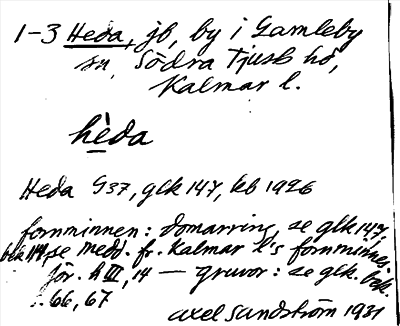 1-3 Heda, jb, by i Gamleby
sn, Södra Tjust hd,
Kalmar l.
hèda
Heda G37, glk 147, kb 1926
fornminnen: domarring, se glk 147,
blk 149, se medd. fr. Kalmar l's fornminnes-
för. h III, 14 — gruvor: se glk. bek.
s. 66, 67
Axel Sandström 1931